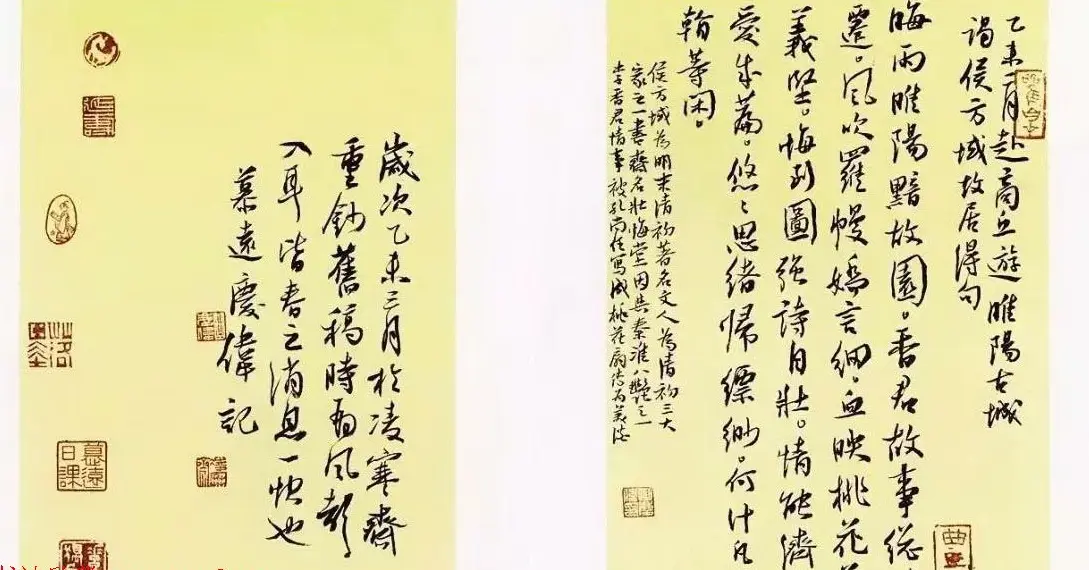 乙未二月赴商丘遊睢陽古城
謁侯方域故居得句
晦雨睢陽黯故園。香君故事總
遷。風吹羅幔嬌言細。血映桃花
義堅。悔到圖強詩自壯。情能濟
愛成篇。悠々思緒歸縹緲。何計凡
翰等閑。
侯方域為明末清初著名文人為清初三大
家之一書齋名壯悔堂因與秦淮八艷之一
李香君情事被孔尚任寫成桃花扇傳為美談
歲次乙未三月於凌寒齋
重鈔舊稿時雨風聲
入耳皆春之消息一快也
慕遠慶偉記
慕遠日課